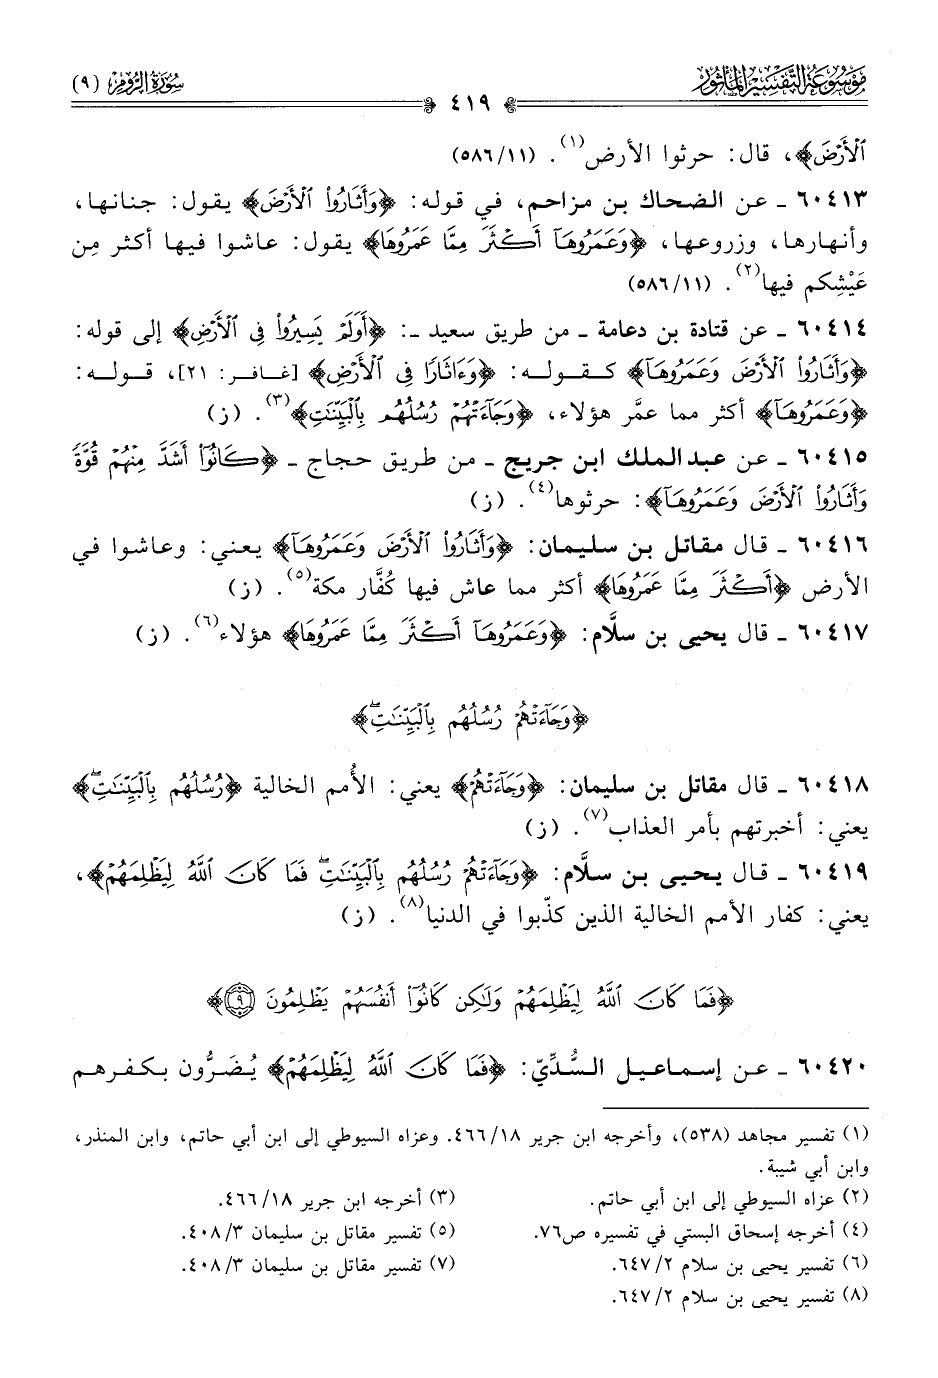 مَوْسُوعَةُ التَّفْسِيرِ المَأْثُور
سُورَةُ الرُّومِ (٩)
٤١٩
ٱلْأَرْضَ﴾، قال: حرثوا الأرض(١). (٥٨٦/١١)
٦٠٤١٣ ـ عن الضحاك بن مزاحم، في قوله: ﴿وَأَثَارُوا۟ ٱلْأَرْضَ﴾ يقول: جنانها،
وأنهارها، وزروعها، ﴿وَعَمَرُوهَآ أَكْثَرَ مِمَّا عَمَرُوهَا﴾ يقول: عاشوا فيها أكثر مِن
عَيْشِكم فيها(٢). (٥٨٦/١١)
٦٠٤١٤ ـ عن قتادة بن دعامة ـ من طريق سعيد ـ: ﴿أَوَلَمْ يَسِيرُوا۟ فِى ٱلْأَرْضِ﴾ إلى قوله:
﴿وَأَثَارُوا۟ ٱلْأَرْضَ وَعَمَرُوهَآ﴾ كقوله: ﴿وَءَاثَارًا فِى ٱلْأَرْضِ﴾ [غافر: ٢١]، قوله:
﴿وَعَمَرُوهَآ﴾ أكثر مما عمَّر هؤلاء، ﴿وَجَآءَتْهُمْ رُسُلُهُم بِٱلْبَيِّنَٰتِ﴾(٣). (ز)
٦٠٤١٥ ـ عن عبد الملك ابن جريج ـ من طريق حجاج ـ ﴿كَانُوٓا۟ أَشَدَّ مِنْهُمْ قُوَّةً
وَأَثَارُوا۟ ٱلْأَرْضَ وَعَمَرُوهَآ﴾: حرثوها(٤). (ز)
٦٠٤١٦ ـ قال مقاتل بن سليمان: ﴿وَأَثَارُوا۟ ٱلْأَرْضَ وَعَمَرُوهَآ﴾ يعني: وعاشوا في
الأرض ﴿أَكْثَرَ مِمَّا عَمَرُوهَا﴾ أكثر مما عاش فيها كُفَّار مكة(٥). (ز)
٦٠٤١٧ ـ قال يحيى بن سلَّام: ﴿وَعَمَرُوهَآ أَكْثَرَ مِمَّا عَمَرُوهَا﴾ هؤلاء(٦). (ز)
﴿وَجَآءَتْهُمْ رُسُلُهُم بِٱلْبَيِّنَٰتِۖ﴾
٦٠٤١٨ ـ قال مقاتل بن سليمان: ﴿وَجَآءَتْهُمْ﴾ يعني: الأُمم الخالية ﴿رُسُلُهُم بِٱلْبَيِّنَٰتِۖ﴾
يعني: أخبرتهم بأمر العذاب(٧). (ز)
٦٠٤١٩ ـ قال يحيى بن سلَّام: ﴿وَجَآءَتْهُمْ رُسُلُهُم بِٱلْبَيِّنَٰتِۖ فَمَا كَانَ ٱللَّهُ لِيَظْلِمَهُمْ﴾،
يعني: كفار الأمم الخالية الذين كذّبوا في الدنيا(٨). (ز)
﴿فَمَا كَانَ ٱللَّهُ لِيَظْلِمَهُمْ وَلَٰكِن كَانُوٓا۟ أَنفُسَهُمْ يَظْلِمُونَ ٩﴾
٦٠٤٢٠ ـ عن إسماعيل السُّدِّيّ: ﴿فَمَا كَانَ ٱللَّهُ لِيَظْلِمَهُمْ﴾ يُضَرُّون بكفرهم
(١) تفسير مجاهد (٥٣٨)، وأخرجه ابن جرير ٤٦٦/١٨. وعزاه السيوطي إلى ابن أبي حاتم، وابن المنذر،
وابن أبي شيبة.
(٢) عزاه السيوطي إلى ابن أبي حاتم.
(٣) أخرجه ابن جرير ٤٦٦/١٨.
(٤) أخرجه إسحاق البستي في تفسيره ص٧٦.
(٥) تفسير مقاتل بن سليمان ٤٠٨/٣.
(٦) تفسير يحيى بن سلام ٦٤٧/٢.
(٧) تفسير مقاتل بن سليمان ٤٠٨/٣.
(٨) تفسير يحيى بن سلام ٦٤٧/٢.